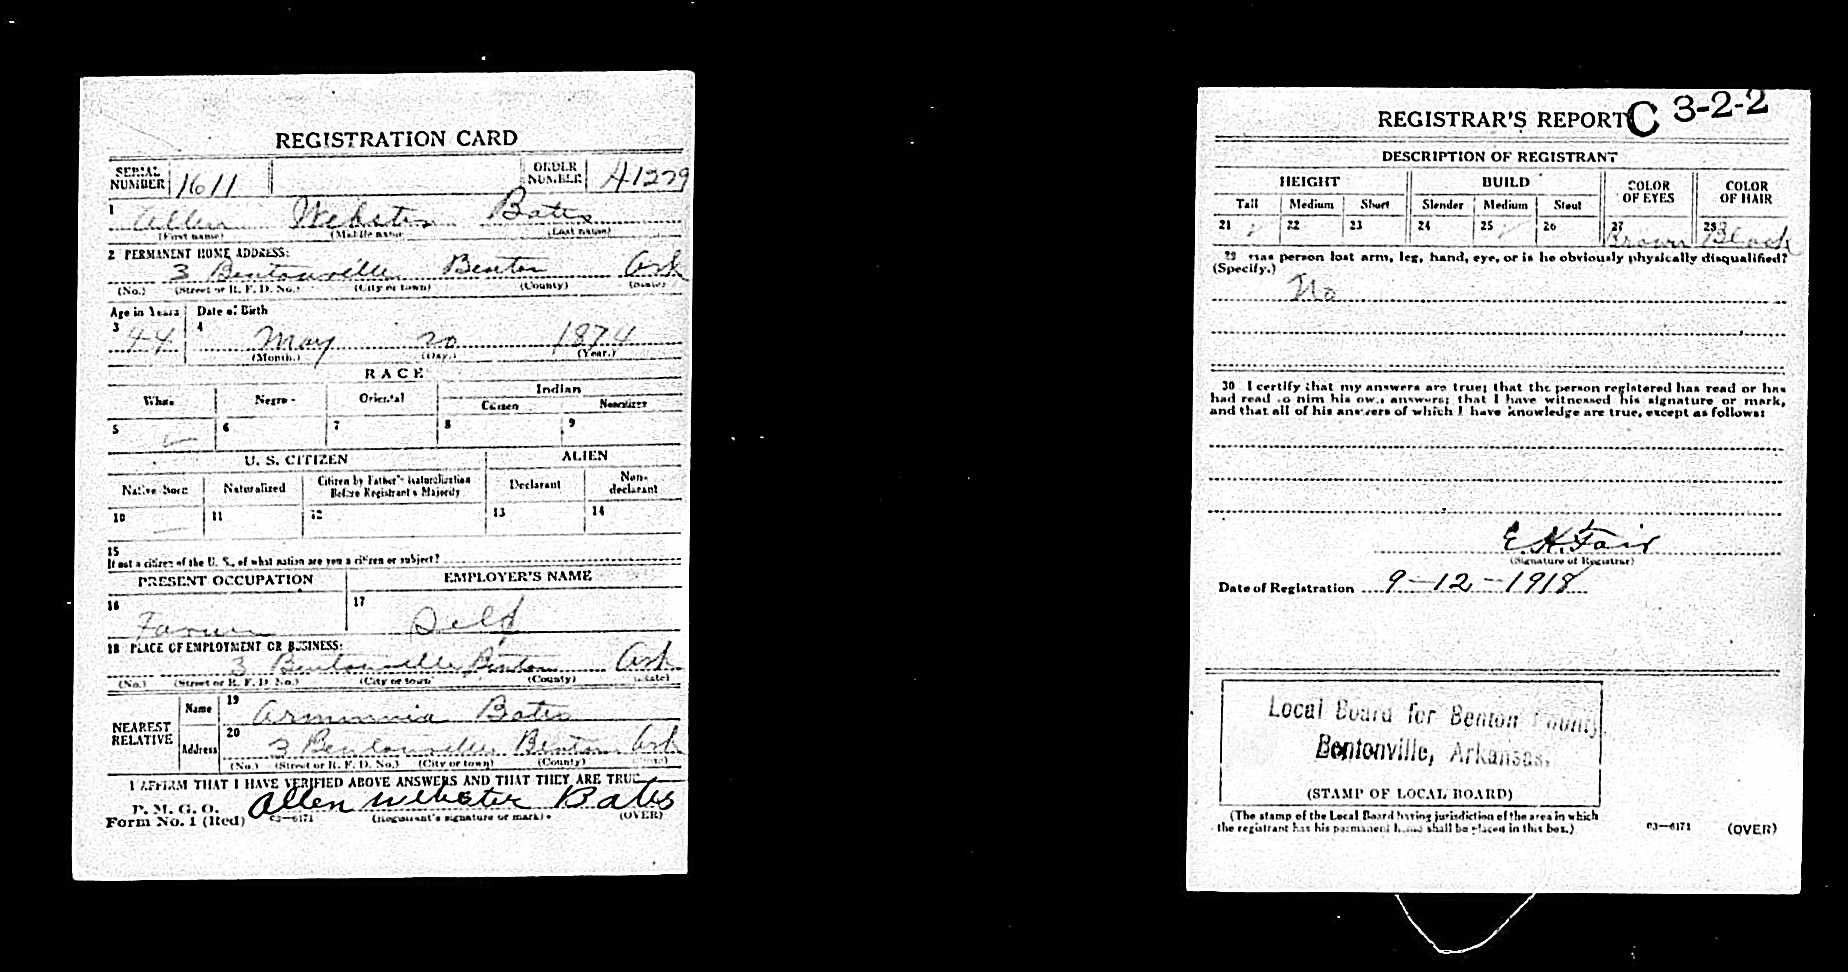 REGISTRATION CARD
SERIAL NUMBER 1611 ORDER NUMBER A1279
1 Allen Webster Bates
(First name) (Middle name) (Last name)
2 PERMANENT HOME ADDRESS:
3 Bentonville Benton Ark
(No.) (Street or R. F. D. No.) (City or town) (County) (State)
Age in Years Date of Birth
3 44 4 May 20 1874
(Month.) (Day.) (Year.)
RACE
White Negro Oriental Indian
Citizen Noncitizen
5 6 7 8 9
U. S. CITIZEN ALIEN
Native Born Naturalized Citizen by Father's Naturalization Before Registrant's Majority Declarant Non-declarant
10 11 12 13 14
15
If not a citizen of the U. S., of what nation are you a citizen or subject?
PRESENT OCCUPATION EMPLOYER'S NAME
16 Farmer 17 Self
18 PLACE OF EMPLOYMENT OR BUSINESS:
3 Bentonville Benton Ark
(No.) (Street or R. F. D. No.) (City or town) (County) (State)
NEAREST RELATIVE Name 19 Bates
Address 20 3 Bentonville Benton Ark
(No.) (Street or R. F. D. No.) (City or town) (County) (State)
I AFFIRM THAT I HAVE VERIFIED ABOVE ANSWERS AND THAT THEY ARE TRUE
P. M. G. O.
Form No. 1 (Red) 03—6171 Allen Webster Bates
(Registrant's signature or mark) (OVER)
REGISTRAR'S REPORT C 3-2-2
DESCRIPTION OF REGISTRANT
HEIGHT BUILD COLOR OF EYES COLOR OF HAIR
Tall Medium Short Slender Medium Stout
21 ✓ 22 23 24 25 ✓ 26 27 Brown 28 Black
29 Has person lost arm, leg, hand, eye, or is he obviously physically disqualified?
(Specify.)
No
30 I certify that my answers are true; that the person registered has read or has
had read to him his own answers; that I have witnessed his signature or mark,
and that all of his answers of which I have knowledge are true, except as follows:
E. H. Fair
(Signature of Registrar)
Date of Registration 9-12-1918
Local Board for Benton County
Bentonville, Arkansas.
(STAMP OF LOCAL BOARD)
(The stamp of the Local Board having jurisdiction of the area in which
the registrant has his permanent home shall be placed in this box.)
03—6171 (OVER)